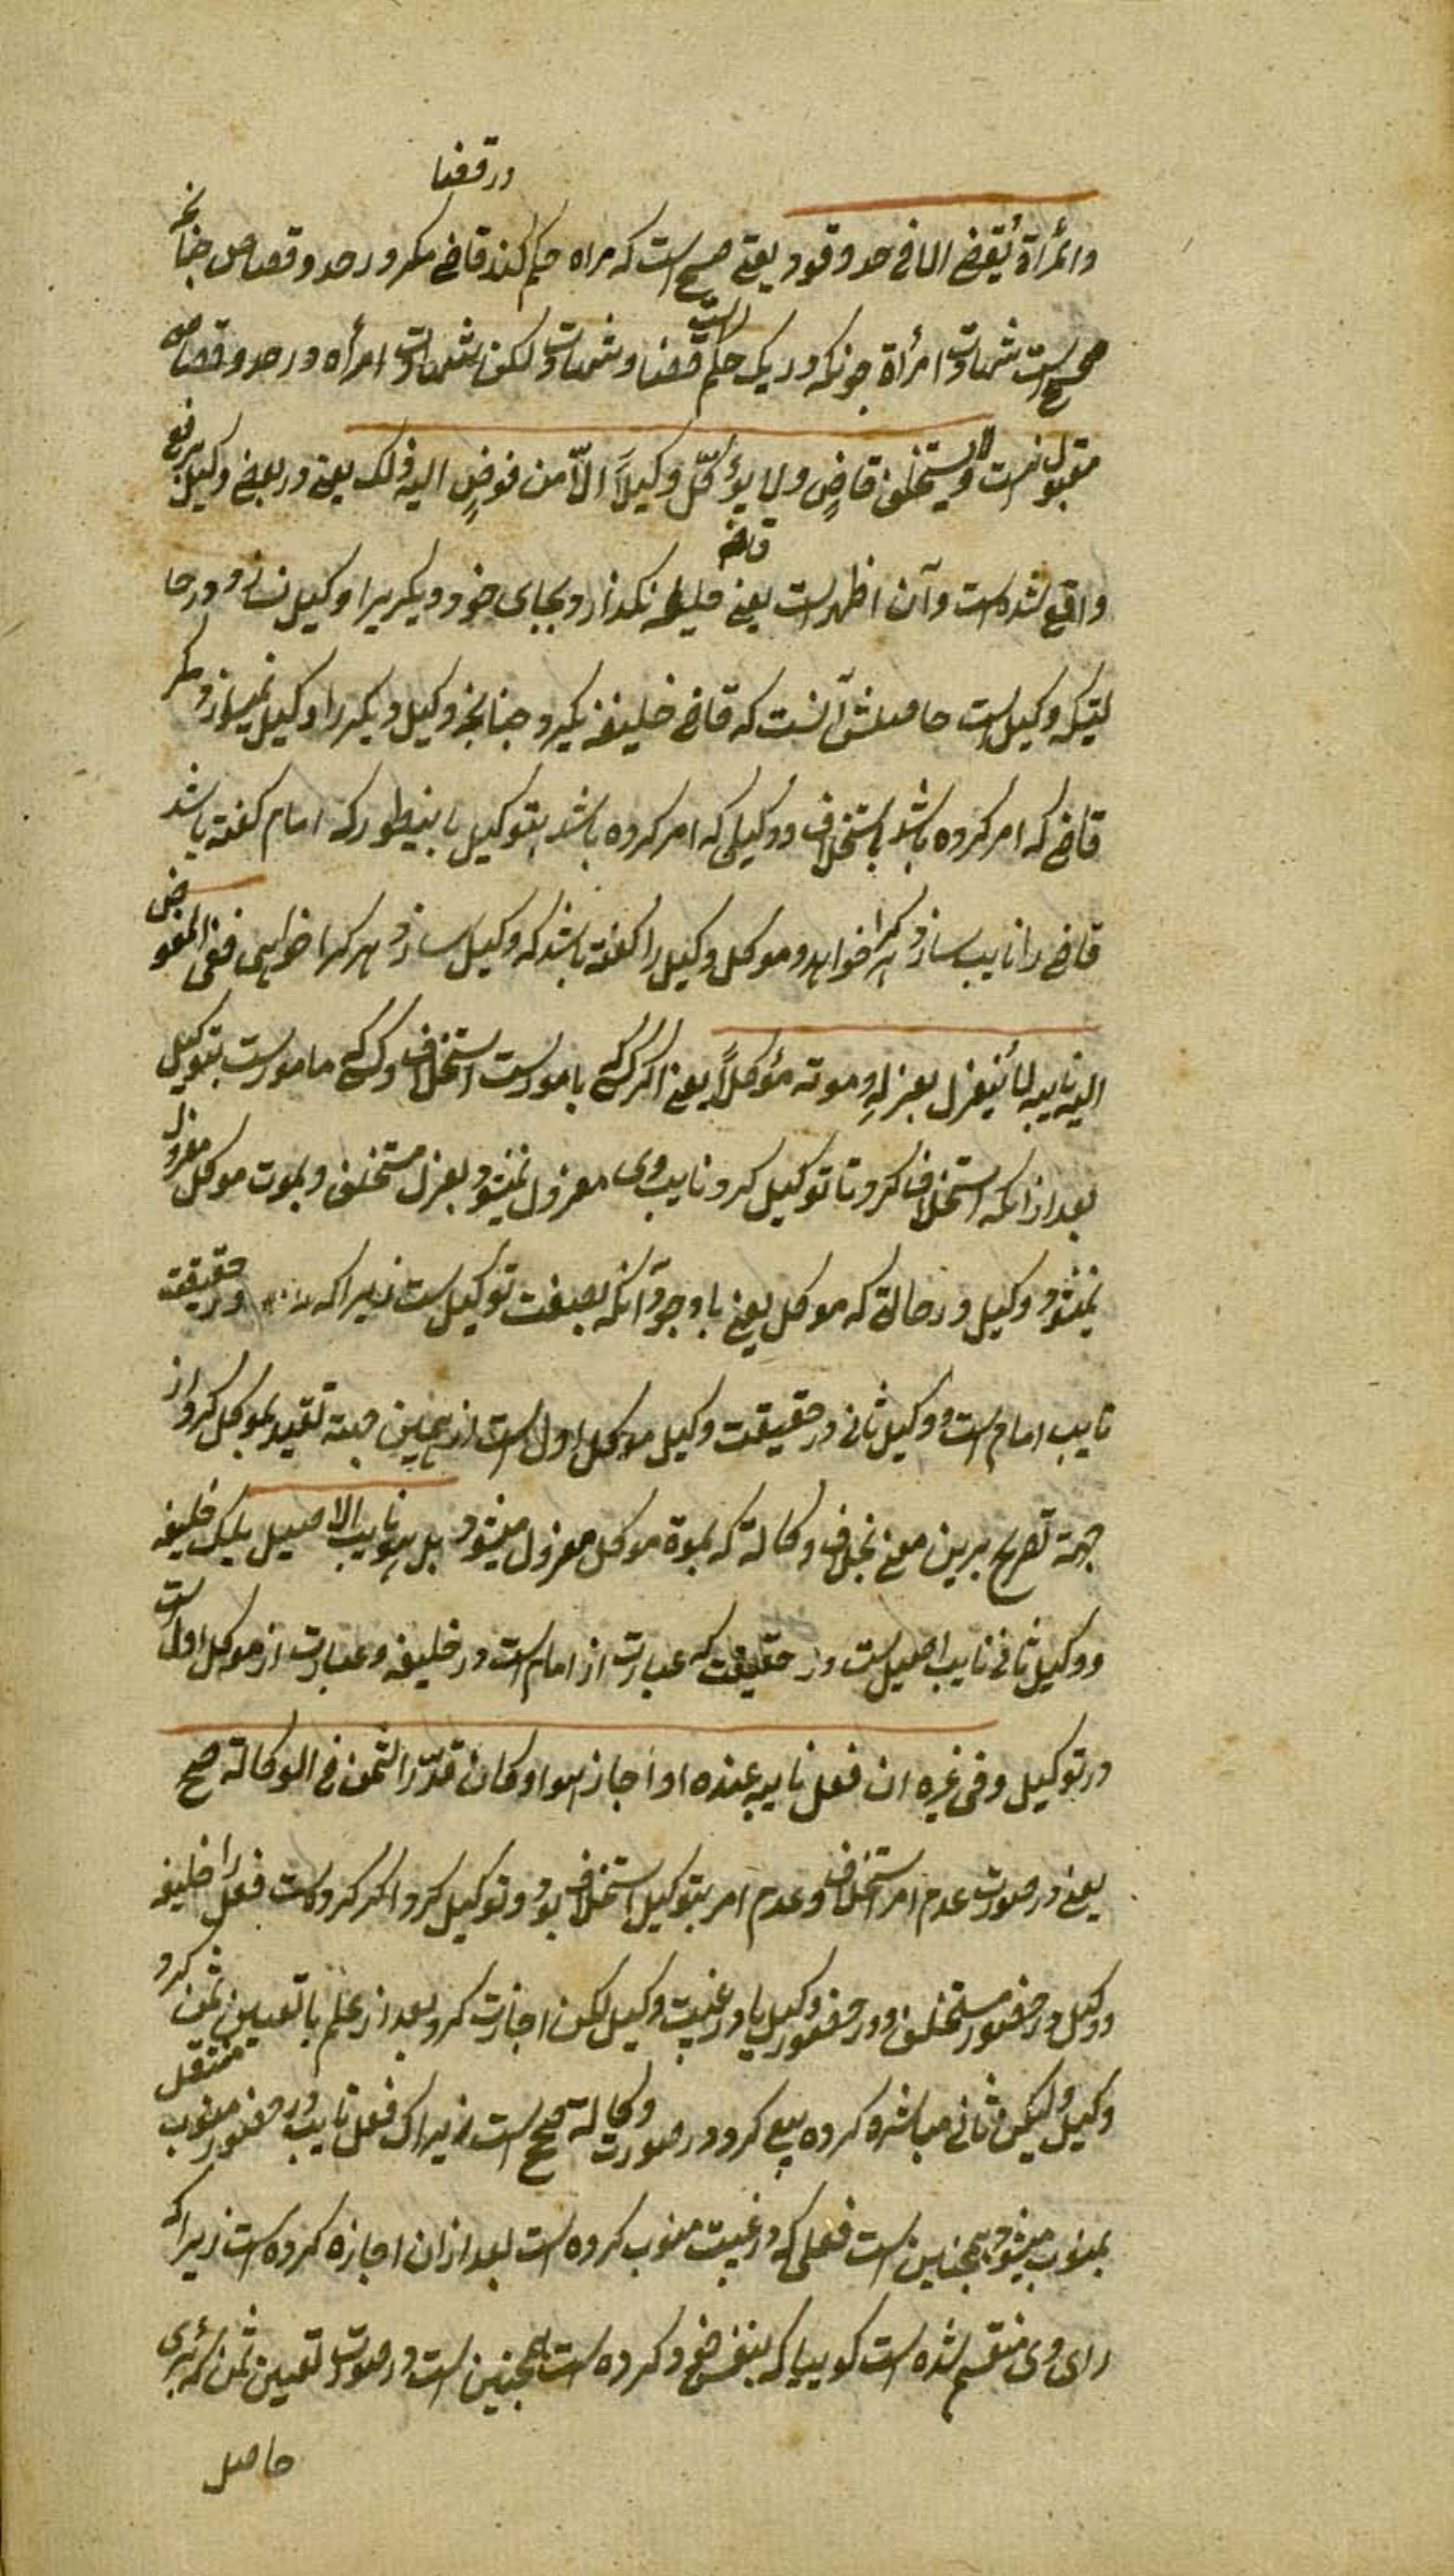 در قضا
وامرأة یقضی الا فی حد وقود یعنی صحیح است که مراه حکم کند قاضی مکر در حد وقصاص چنانچه
صحیح است شهادت امرأة چونکه در یک حکم است قضا وشهادت لکن شهادت امرأه در حد وقصاص
مقبول نیست ولا یستخلف قاضٍ ولا یؤکّل وکیلاً الّا من فوضٍ الیه ذلک یعنی در بعضی وکیل
واقع شده است وآن اظهر است یعنی خلیفه نکذارد قاضی بجای خود ودیکریرا وکیل نسازد در حا
لتیکه وکیل است حاصلش آنست که قاضی خلیفه نکیرد چنانچه وکیل دیکر را وکیل نمیسازد مکر
قاضی که امر کرده باشد باستخلاف ووکیلی که امر کرده باشد بتوکیل باینطور که امام کفته باشد
قاضی را نایب ساز هر کرا خواهد وموکل وکیل را کفته باشد که وکیل ساز هر کرا خواهی ففی المفوض
الیه نایبه لا ینعزل بعزله وموته مؤکلاً یعنی اکر کسی مامور است باستخلاف وکسی که مامور است بتوکیل
بعد از انکه استخلاف کرد تا توکیل کرد نایب وی معزول نمیشود بعزل مستخلف وبموت موکل معزول
نمیشود وکیل در حالة که موکل یعنی با وجود آنکه بصفت توکیل است زیرا که در حقیقت
نایب امام است ووکیل ثانی در حقیقت وکیل موکل اول است از همین جهة تقیید بموکل کرد از
جهة تصریح برین معنی بخلاف وکالة که بموة موکل معزول میشود بل هو نایب الاصیل بلیک خلیفه
ووکیل ثانی نایب اصیل است در حقیقت که عبارت از امام است در خلیفه وعبارت از موکل اول است
در توکیل وفی غیره ان فعل نایبه عنده او اجاز هو او کان قدّر الثمن فی الوکالة صح
یعنی در صورت عدم امر استخلاف وعدم امر بتوکیل استخلاف بود وتوکیل کرد اکر کرده است فعل را خلیفه
ووکیل در حضور مستخلف ودر حضور وکیل یا در غیبت وکیل لکن اجازت کرد بعد از علم یا تعیین ثمن کرد
وکیل ولیکن ثانی مباشره کرده بیع کرد در صورت وکالة صحیح است زیراک فعل نایب در حضور منوب منتقل
بمنوب میشود همچنین است فعلی که در غیبت منوب کرده است بعد از ان اجازه کرده است زیرا که
رای وی منقسم شده است کوییا که بنفس خود کرده است همچنین است در صورت تعیین ثمن که رای
حاصل